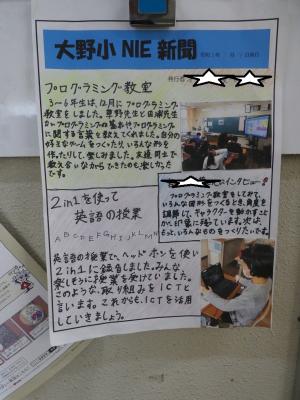 大野小NIE新聞
発行者
プログラミング教室
3〜6年生は、12月にプログラミング
教室をしました。草野先生と田浦先生
がプログラミングの基本やプログラミング
に関する言葉を教えてくれました。自分の
好きなゲームをつくったり、いろんな形を
作ったりして、楽しみました。友達同士で
教え合いながらできたのも楽しかった
です。
にインタビュー
プログラミング教室をしてみて、
いろんな図形をつくるとき、角度を
調節して、キャラクターを動かすこと
が印象に残っています。次は、
もっと、いろんなものをつくりたいです。
2in1を使って
英語の授業
ABCDEFGHIJKLMN
英語の授業で、ヘッドホンを使い
2in1に録音しました。みんな
楽しそうに授業を受けていました。
このような、取り組みをICTと
言います。これからも、ICTを活用
していきましょう。